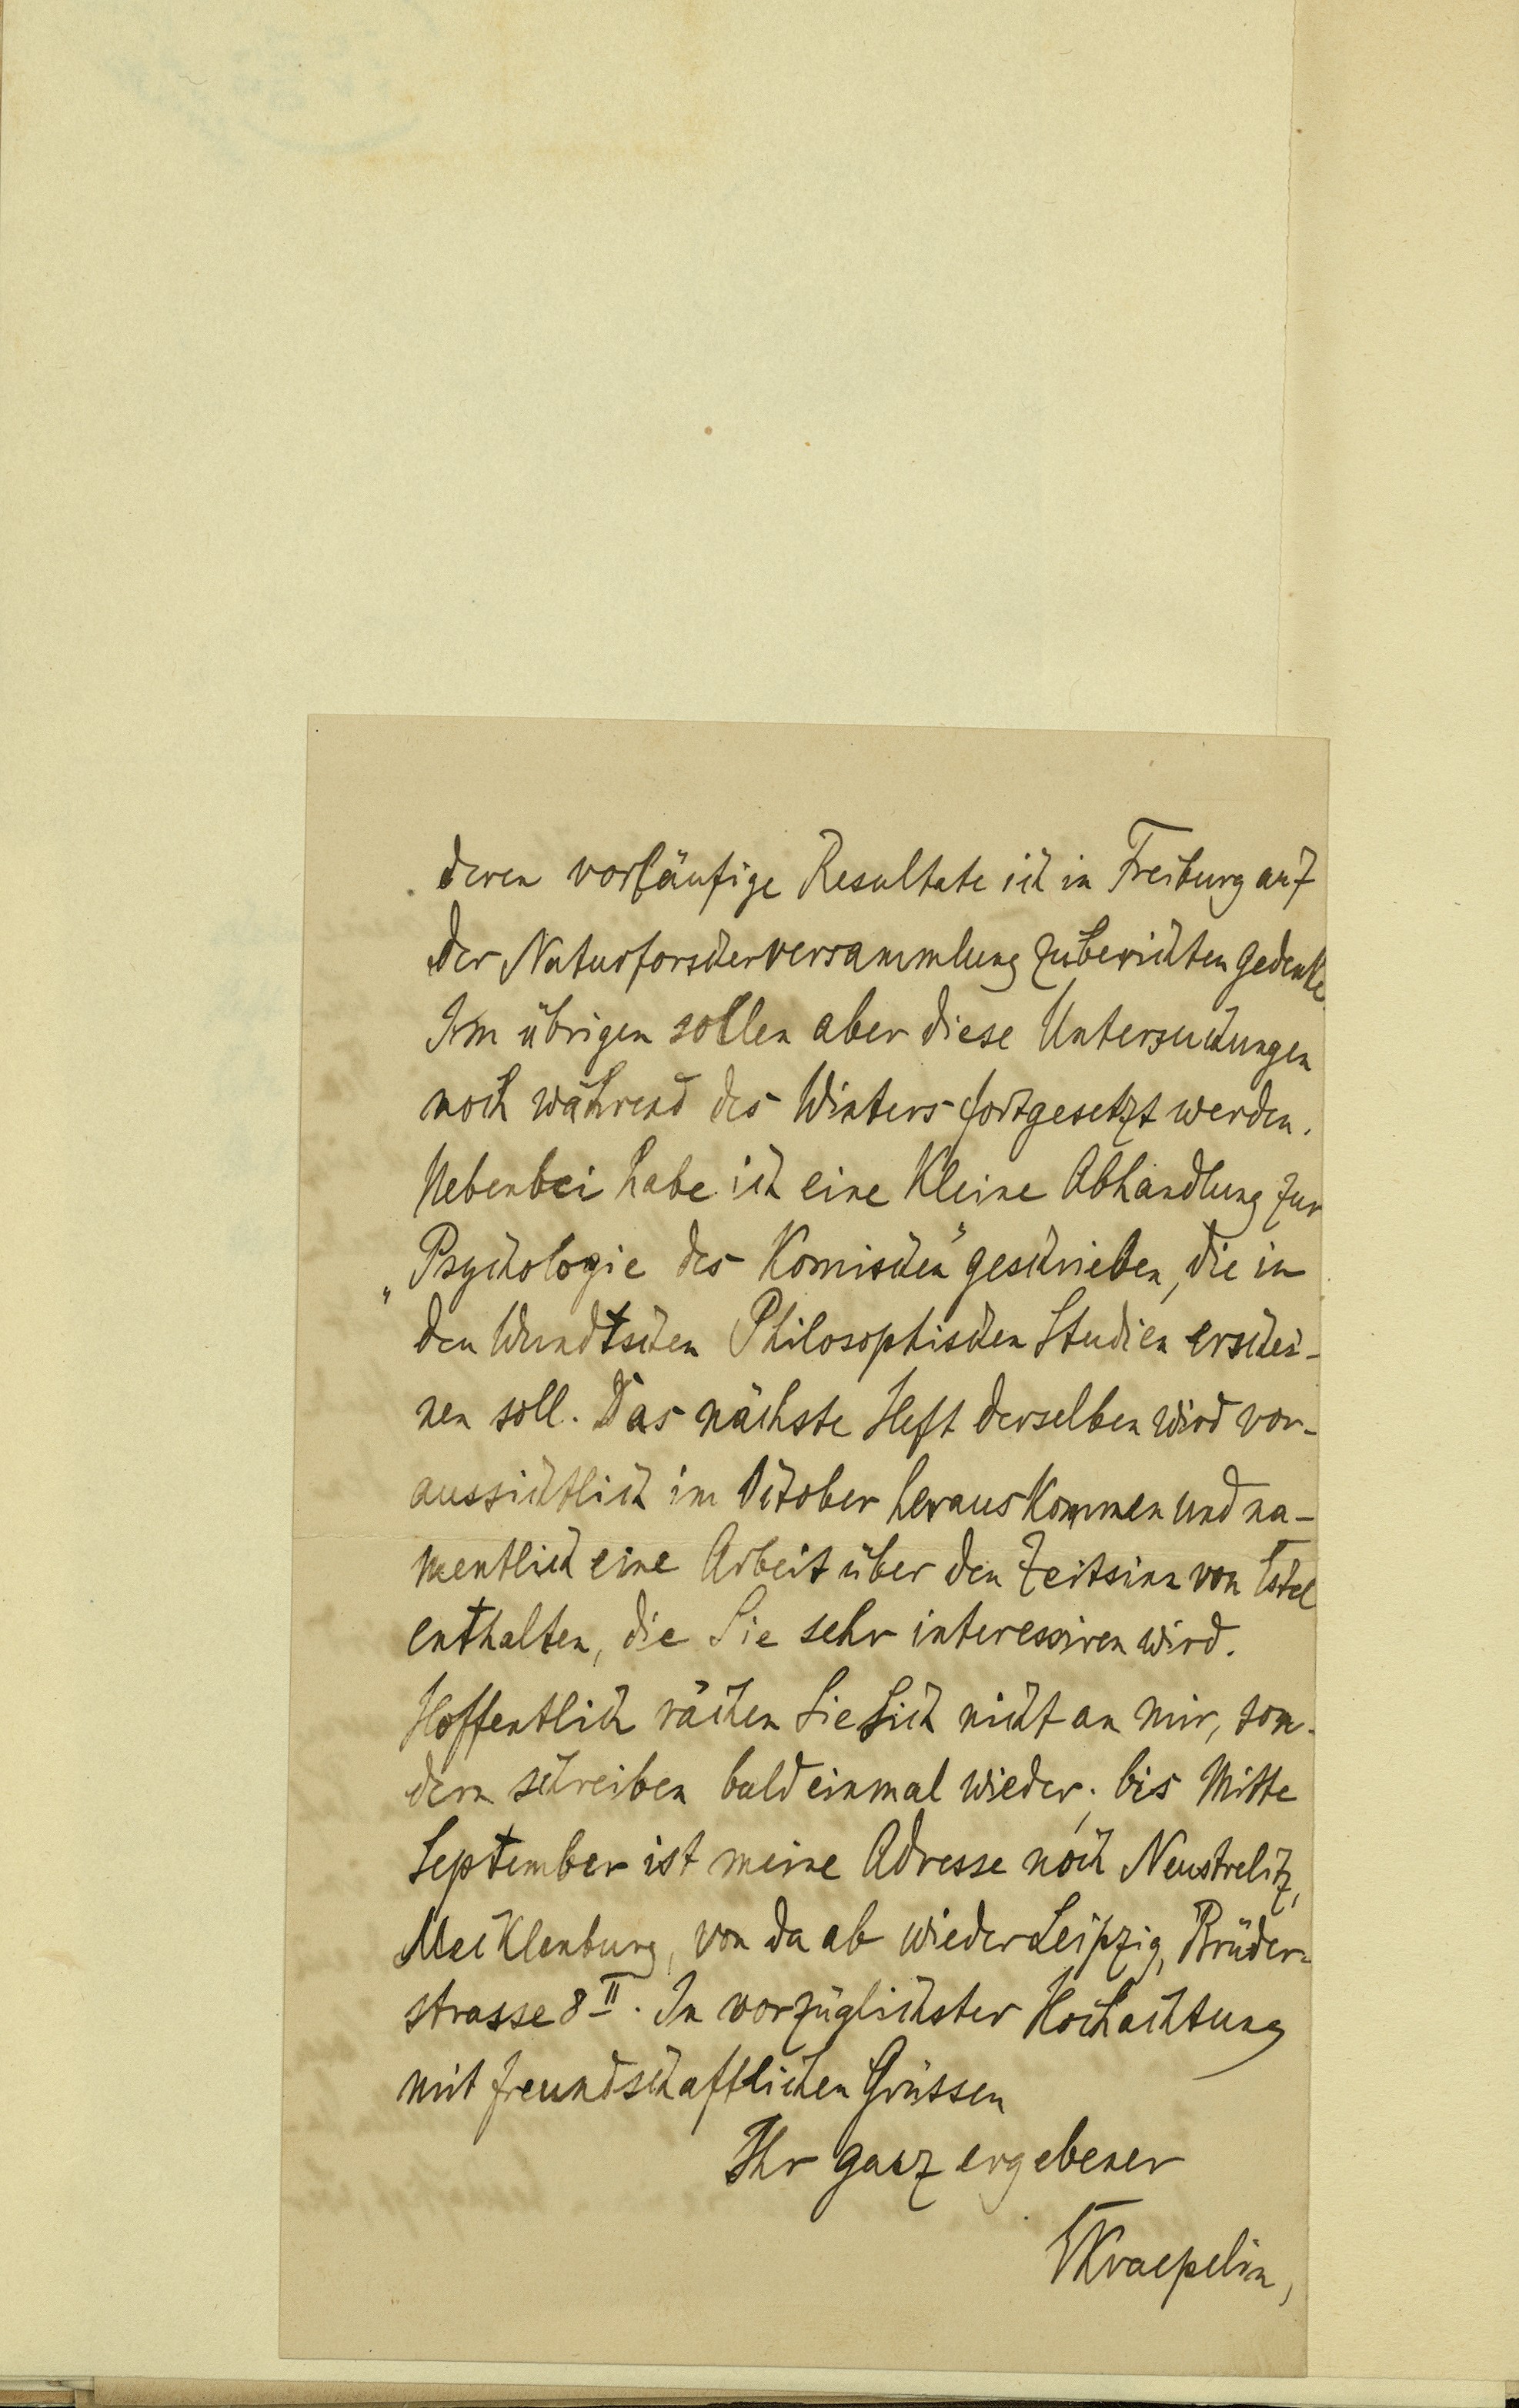 deren vorläufige Resultate ich in Freiburg auf
der Naturforscherversammlung zu berichten gedenke.
Im übrigen sollen aber diese Untersuchungen
noch während des Winters fortgesetzt werden.
Nebenbei habe ich eine kleine Abhandlung zur
„Psychologie des Komischen" geschrieben, die in
den Wundtschen Philosophischen Studien erschei-
nen soll. Das nächste Heft derselben wird vor-
aussichtlich im October herauskommen und na-
mentlich eine Arbeit über den Zeitsinn von Estel
enthalten, die Sie sehr interessiren wird.
Hoffentlich rächen Sie Sich nicht an mir, son-
dern schreiben bald einmal wieder; bis Mitte
September ist meine Adresse noch Neustrelitz,
Mecklenburg, von da ab wieder Leipzig, Brüder-
strasse 8 II. In vorzüglichster Hochachtung
mit freundschaftlichen Grüssen
Ihr ganz ergebener
EKraepelin,